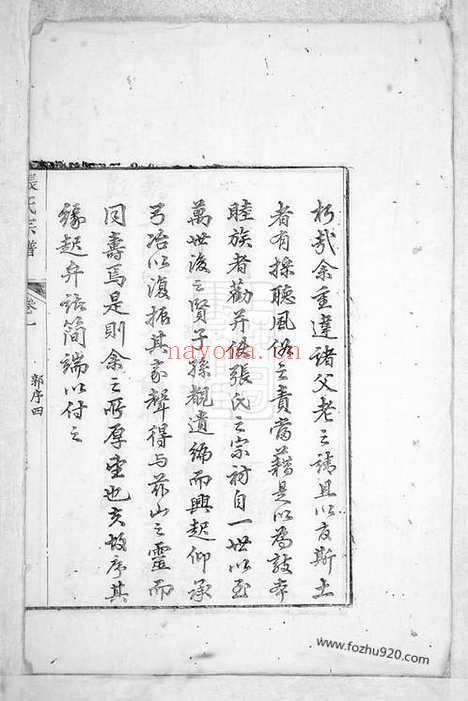 朽哉余重違諸父老之請且以宦斯土
者有採聽風俗之責當藉是以為敦孝
睦族者勸并俾張氏之宗祊自一世以至
萬世後之賢子孫觀遺編而興起仰承
弓冶以復振其家聲得与茲山之靈而
同壽焉是則余之所厚望也夫故序其
緣起弁諸簡端以付之
張氏宗譜
卷一
郭序四
nayona.cn
www.fozhu920.com